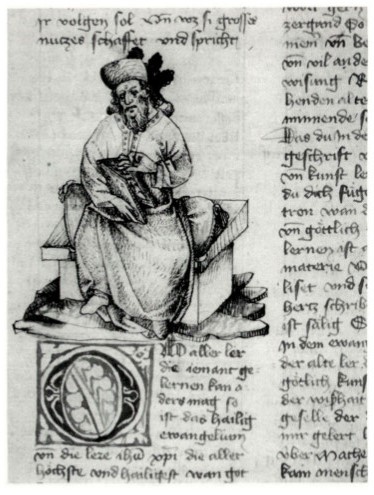 ir volgen sol Vñ waz si grosses
nuczes schaffet vnd spricht
O Wo aller ler
die iemant ge
lernen kan a
ders mag so
ist das hailig
ewangelium
vñ die lere ihū xp̄i die aller
höchste vnd hailigest wan got
zergand
men vñ
vñ vil ande
wisung
henden alte
minnende
das du in de
geschrift
vñ kunst le
du dich füge
tron wan d
vñ göttlich
lernen ist
materie
liset vnd s
hertz schrib
ist sälig
in dem ewan
der alte ler
götlich kuns
der wißhait
geselle der
mir gelert
über mache
kain mensch